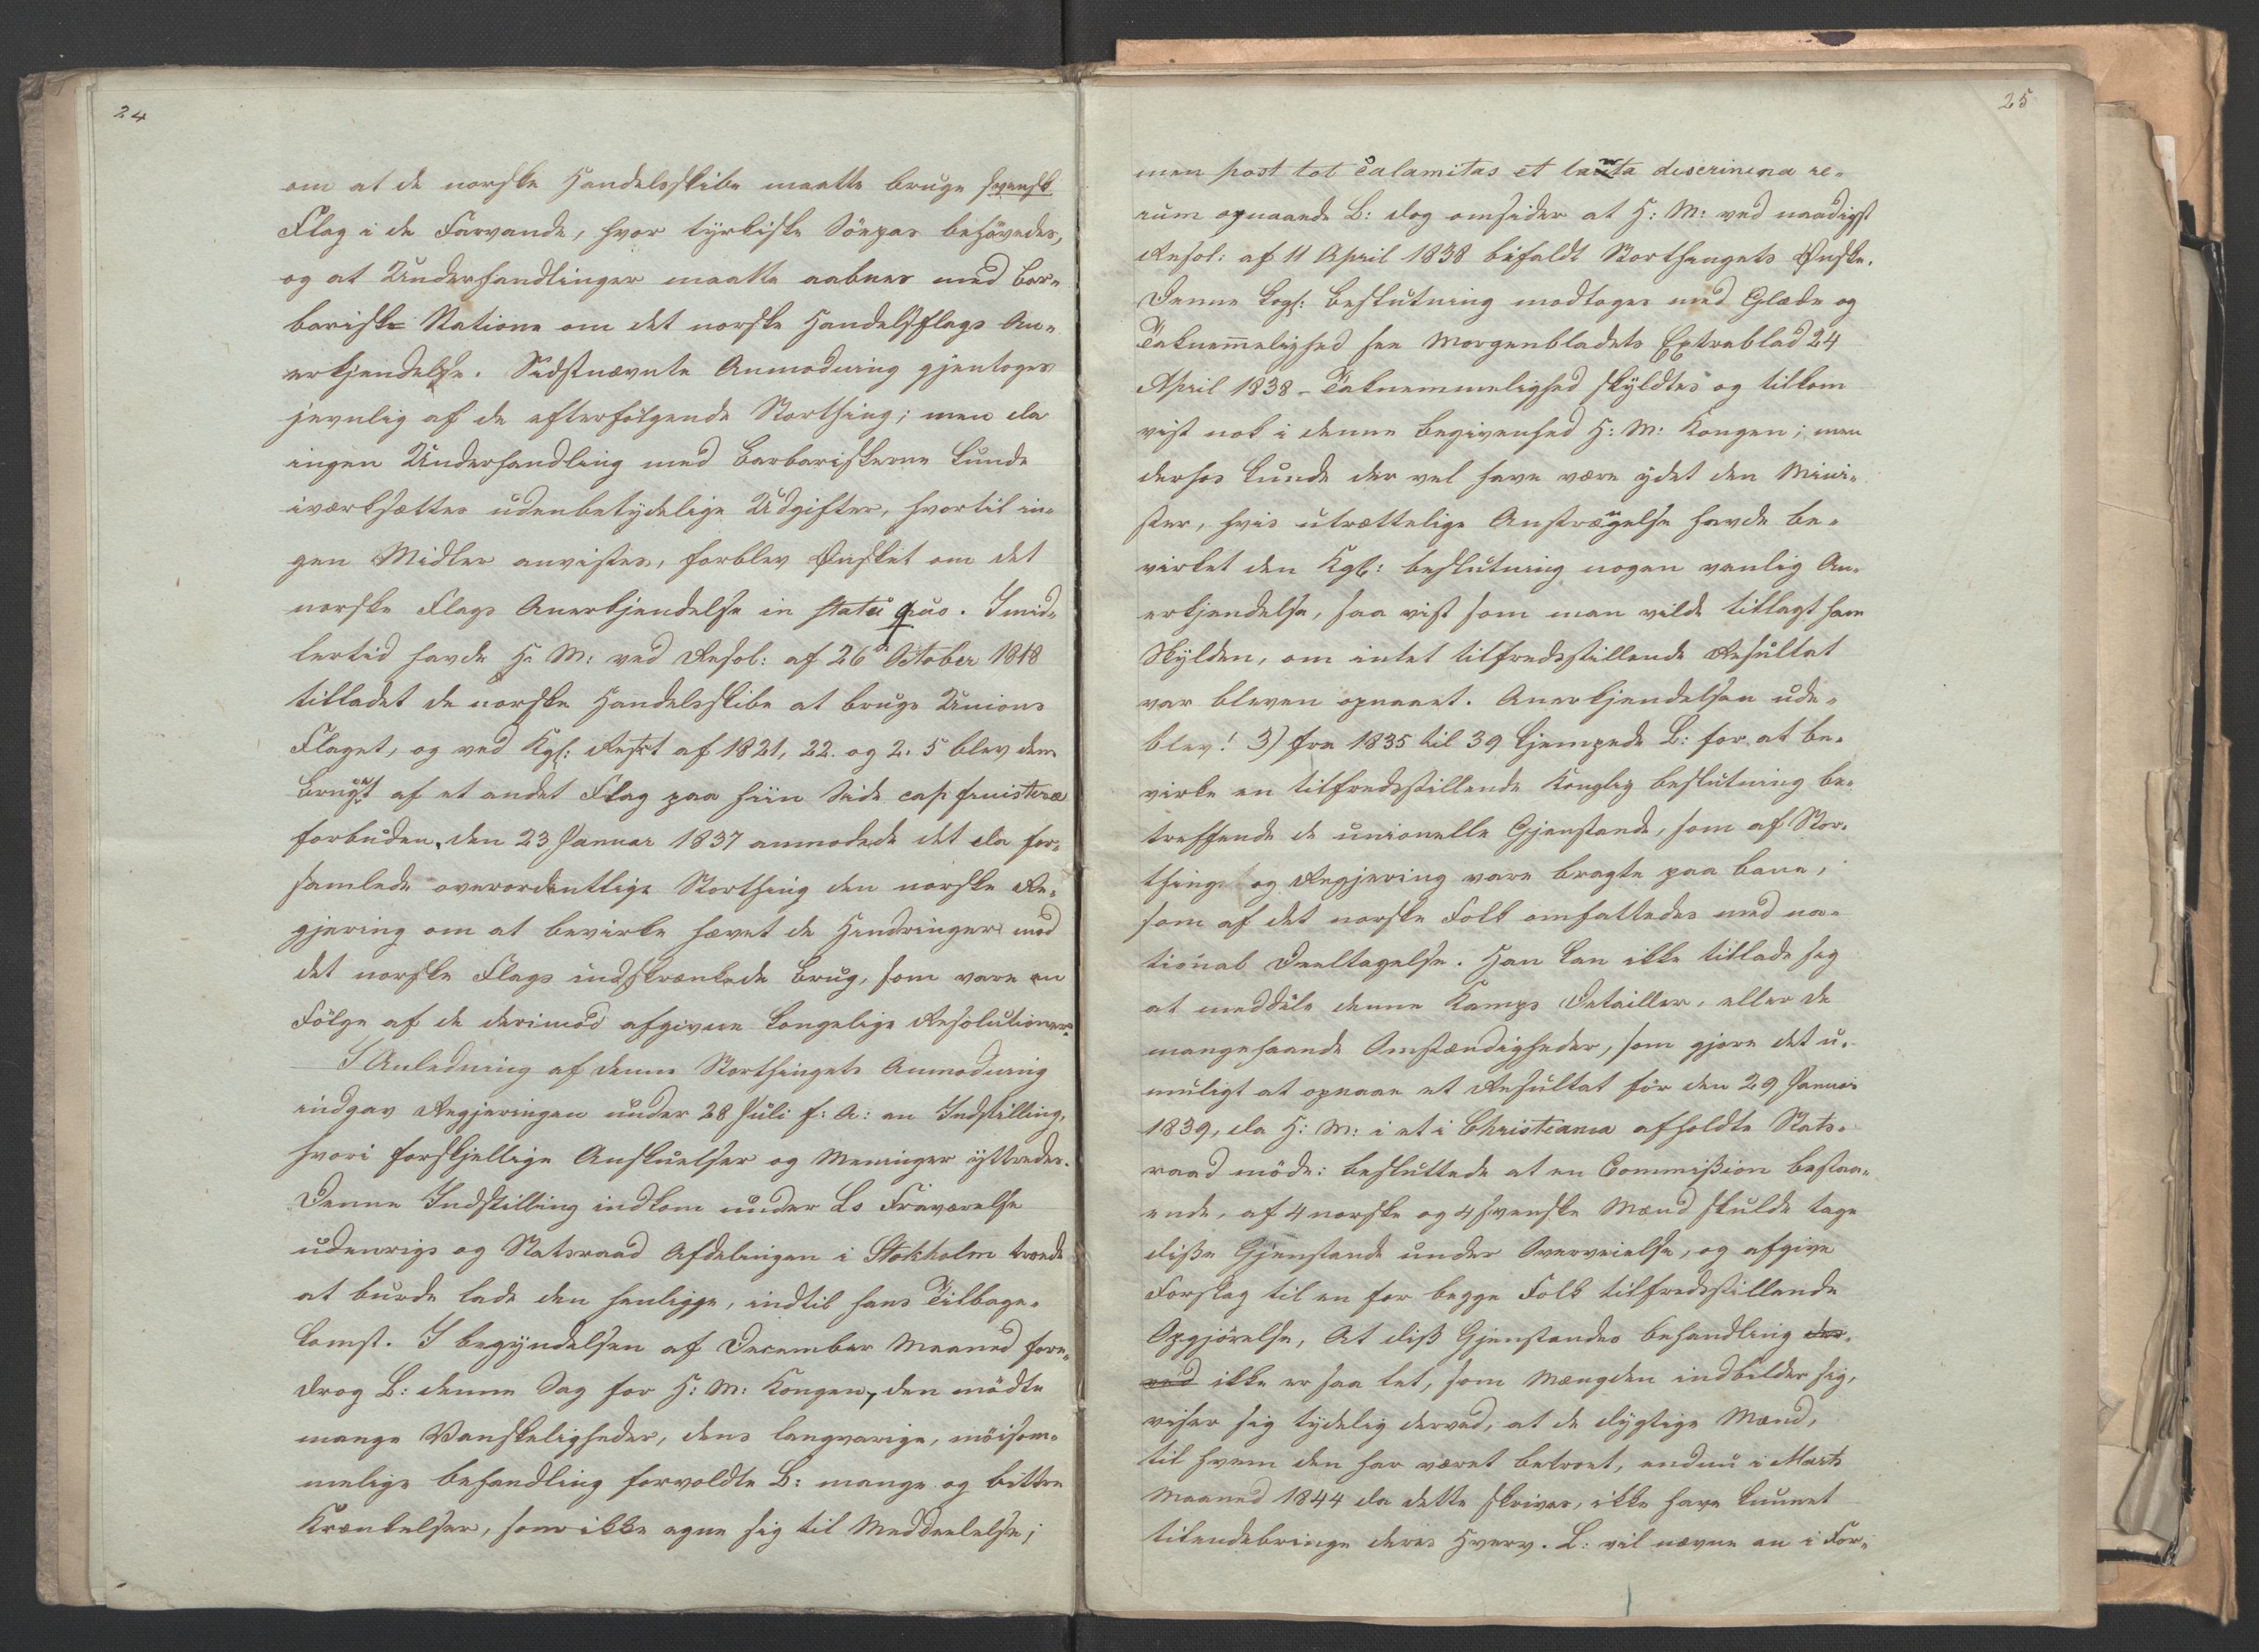 24
om at de norske Handelsskibe maatte bruge svensk
Flag i de Farvande, hvor tyrkiske Söepas behövedes,
og at Underhandlinger maatte aabnes med bar-
bariske Statione om det norske Handelsflags An-
erkjendelse. Sidstnævnte Anmodning gjentoges
jevnlig af de efterfölgende Storthing; men da
ingen Underhandling med Barbariskerne kunde
iværksættes uden betydelige Udgifter, hvortil in-
gen Midler anvistes, forblev Ønsket om det
norske Flags Anerkjendelse in statu quo. Imid-
lertid havde H. M: ved Resol: af 26 October 1818
tilladet de norske Handelsskibe at bruge Unions
Flaget, og ved Kgl: Reskt af 1821, 22. og 2. 5 blev dem
Bruget af et andet Flag paa hiin Side cap finisteræ
forbuden. Den 23 Januar 1837 anmodede det da for-
samlede overordentlige Storthing den norske Re-
gjering om at bevirke hævet de Hindringer mod
det norske Flags indskrænkede Brug, som vare en
Fölge af de derimod afgivne kongelige Resolutioner.
I Anledning af denne Storthingets Anmodning
indgav Regjeringen under 28 Juli s: A: en Indstilling,
hvori forskjellige Anskuelser og Meninger yttredes.
Denne Indstilling indkom under Ls Fraværelse
udenrigs og Statsraad Afdelingen i Stokholm troede
at burde lade den henligge, indtil hans Tilbage-
komst. I Begyndelsen af December Maaned fore-
drog L: denne Sag for H: M: Kongen, den mödte
mange Vanskeligheder, dens langvarige, möisom-
melige Behandling forvoldte L: mange og bittre
Krænkelser, som ikke egne sig til Meddeelelse;
25
men post tot calamitas et tanta discrimina re-
rum opnaaede L: dog omsider at H: M: ved naadigst
Resol: af 11 April 1838 bifaldt Storthingets Ønske.
Denne kogl: Beslutning modtoges med Glæde og
Taknemmelighed see Morgenbladets Extrablad 24
April 1838 - Taknemmelighed skyldtes og tilkom
vist nok i denne Begivenhed H: M: Kongen; men
derhos kunde der vel have være ydet den Mini-
ster, hvis utrættelige Anstrængelse havde be-
virket den Kgl: Beslutning nogen venlig An-
erkjendelse, saa vist som man vilde tillagt ham
Skylden, om intet tilfredsstillende Resultat
var bleven opnaaet. Anerkjendelsen ude-
blev! 3) fra 1835 til 39 kjempede L: for at be-
virke en tilfredsstillende Konglig Beslutning be-
treffende de unionelle Gjenstande, som af Stor-
thing og Regjering vare bragte paa bane,
som af det norske Folk omfattedes med na-
tional Deeltagelse. Han kan ikke tillade sig
at meddele denne Kamps Detailler, eller de
mangehaande Omstændigheder, som gjore det u-
muligt at opnaae et Resultat för den 29 Januar
1839, da H: M: i et i Christiania afholdte Stats-
raad möde: besluttede at en Commission bestaa-
ende, af 4 norske og 4 svenske Mænd skulde tage
disse Gjenstande under Overveielse, og afgive
Forslag til en for begge Folk tilfredsstillende
Opgjörelse, At diss Gjenstandes Behandling der-
ved ikke er saa let, som Mængden indbilder sig,
viser sig tydelig derved, at de dygtige Mænd,
til hvem den har været betroet, endnu i Marts
Maaned 1844 da dette skrives, ikke have kunnet
tilendebringe deres Hverv. L: vil nævne en i For-